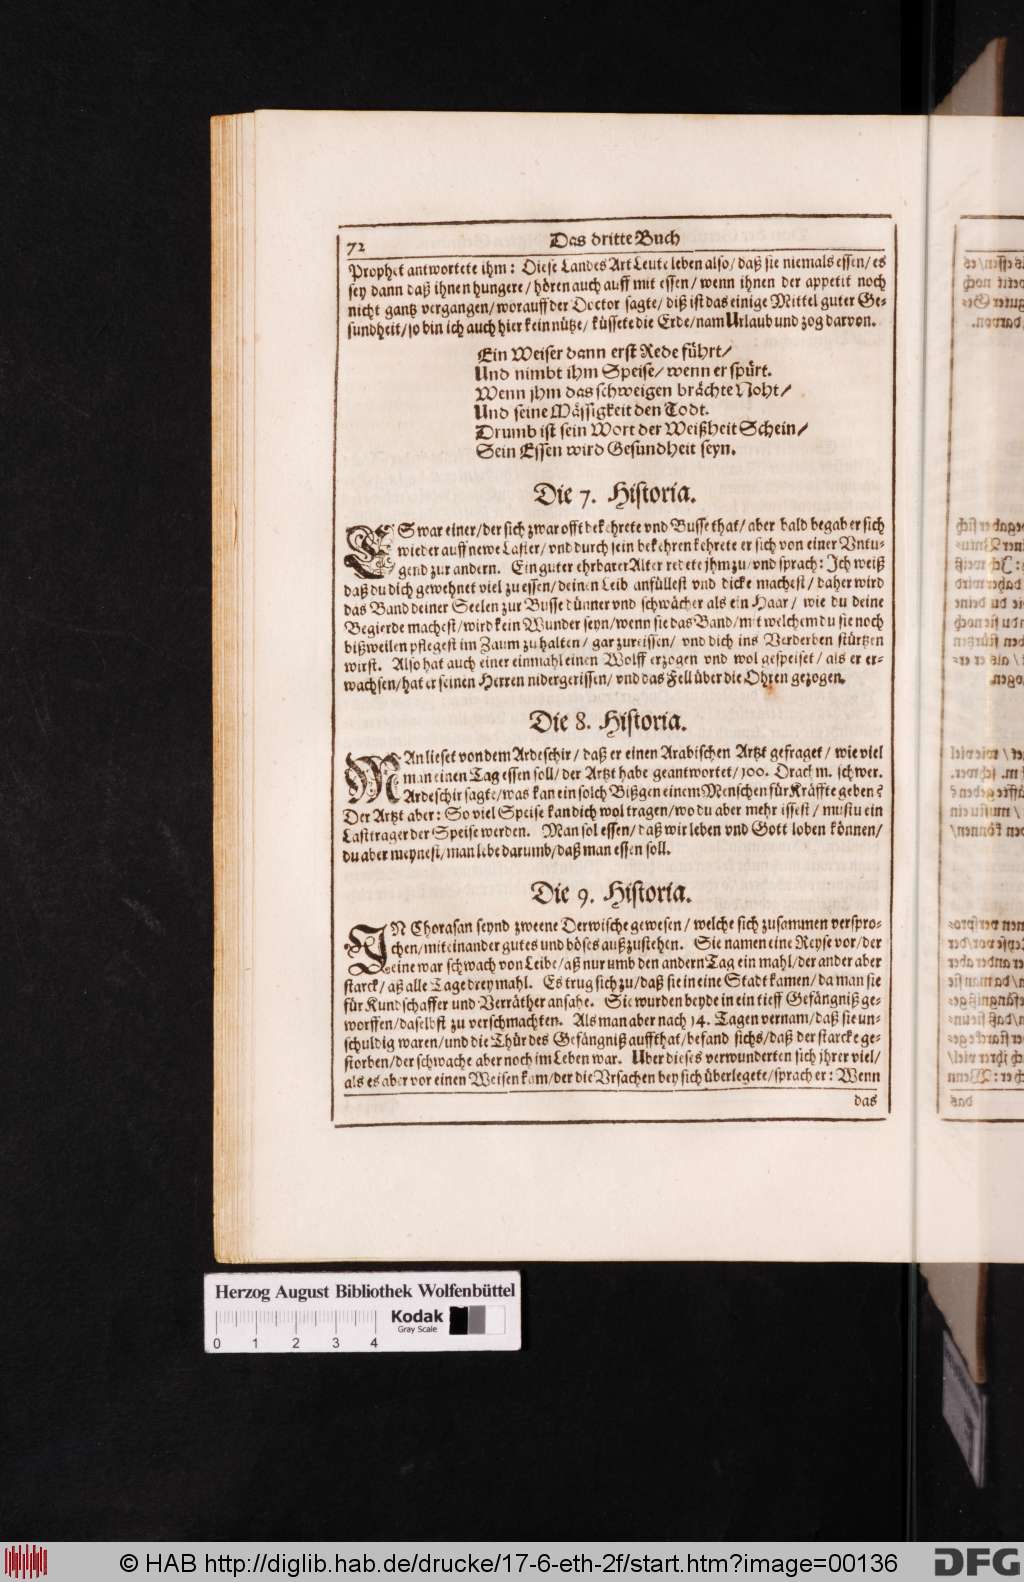 72 Das dritte Buch
Prophet antwortete ihm: Diese Landes Art Leute leben also/ daß sie niemals essen/ es
sey dann daß ihnen hungere/ hören auch auff mit essen/ wenn ihnen der appetit noch
nicht gantz vergangen/ worauff der Doctor sagte/ diß ist das einige Mittel guter Ge-
sundheit/ so bin ich auch hier kein nütze/ küssete die Erde/ nam Urlaub und zog darvon.
Ein Weiser dann erst Rede führt/
Und nimbt ihm Speise/ wenn er spürt.
Wenn jhm das schweigen brächte Noht/
Und seine Mässigkeit den Todt.
Drumb ist sein Wort der Weißheit Schein/
Sein Essen wird Gesundheit seyn.
Die 7. Historia.
ES war einer/ der sich zwar offt bekehrete vnd Busse that/ aber bald begab er sich
wieder auff newe Laster/ vnd durch sein bekehren kehrete er sich von einer Vntu-
gend zur andern. Ein guter ehrbarer Alter redete jhm zu/ vnd sprach: Ich weiß
daß du dich gewehnet viel zu essen/ deinen Leib anfüllest vnd dicke machest/ daher wird
das Band deiner Seelen zur Busse dünner vnd schwächer als ein Haar/ wie du deine
Begierde machest/ wird kein Wunder seyn/ wenn sie das Band/ mit welchem du sie noch
bißweilen pflegest im Zaum zu halten/ gar zureissen/ vnd dich ins Verderben stürtzen
wirst. Also hat auch einer einmahl einen Wolff erzogen vnd wol gespeiset/ als er er-
wachsen/ hat er seinen Herren nidergerissen/ vnd das Fell über die Ohren gezogen.
Die 8. Historia.
MAn lieset von dem Ardeschir/ daß er einen Arabischen Artzt gefraget/ wie viel
man einen Tag essen soll/ der Artzt habe geantwortet/ 100. Drachm. schwer.
Ardeschir sagte/ was kan ein solch Bißgen einem Menschen für Kräffte geben?
Der Artzt aber: So viel Speise kan dich wol tragen/ wo du aber mehr issest/ mustu ein
Lastträger der Speise werden. Man sol essen/ daß wir leben vnd Gott loben können/
du aber meynest/ man lebe darumb/ daß man essen soll.
Die 9. Historia.
IN Chorasan seynd zweene Derwische gewesen/ welche sich zusammen verspro-
chen/ miteinander gutes und böses außzustehen. Sie namen eine Reyse vor/ der
eine war schwach von Leibe/ aß nur umb den andern Tag ein mahl/ der ander aber
starck/ aß alle Tage drey mahl. Es trug sich zu/ daß sie in eine Stadt kamen/ da man sie
für Kundschaffer und Verräther ansahe. Sie wurden beyde in ein tieff Gefängniß ge-
worffen/ daselbst zu verschmachten. Als man aber nach 14. Tagen vernam/ daß sie un-
schuldig waren/ und die Thür des Gefängniß auffthat/ befand sichs/ daß der starcke ge-
storben/ der schwache aber noch im Leben war. Uber dieses verwunderten sich jhrer viel/
als es aber vor einen Weisen kam/ der die Vrsachen bey sich überlegete/ sprach er: Wenn
das
Herzog August Bibliothek Wolfenbüttel
Kodak
Gray Scale
0 1 2 3 4
© HAB http://diglib.hab.de/drucke/17-6-eth-2f/start.htm?image=00136
DFG